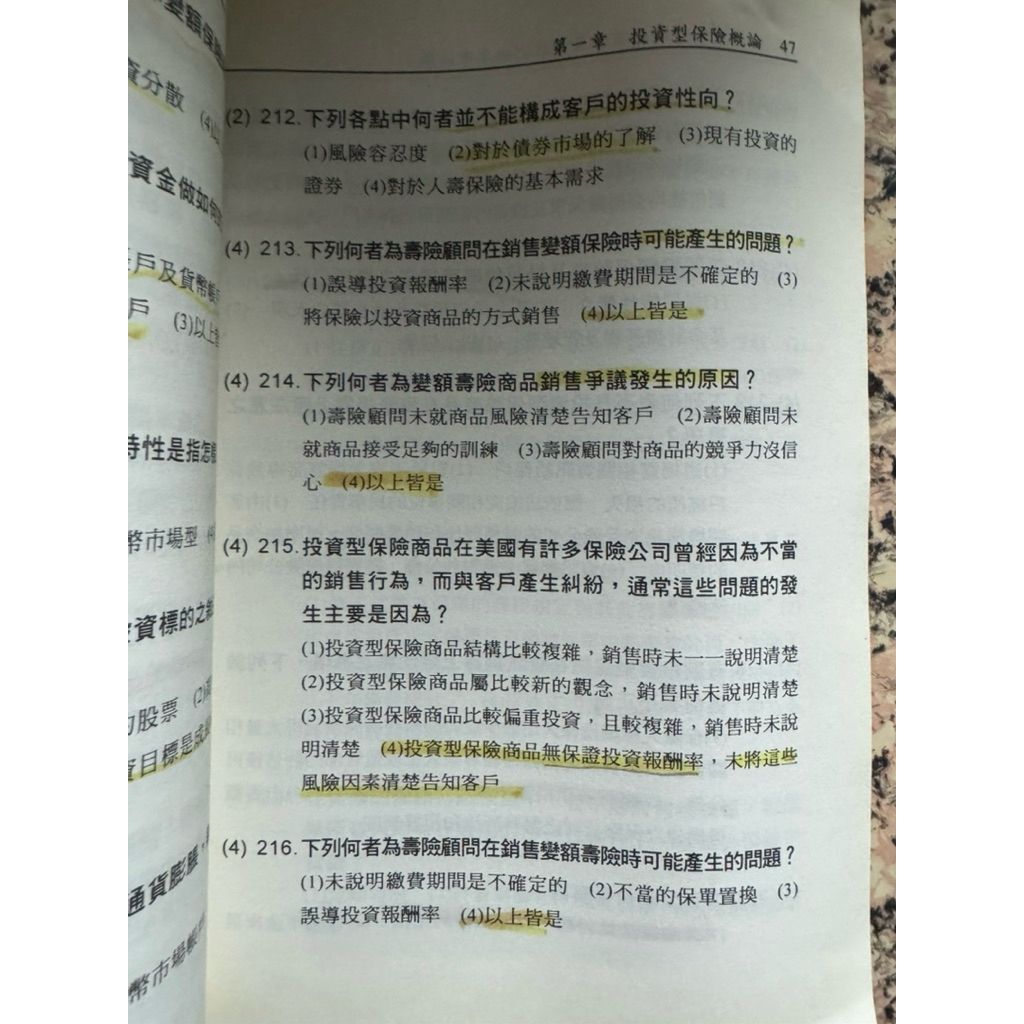 第一章 投資型保險概論 47
(2) 212. 下列各點中何者並不能構成客戶的投資性向？
(1)風險容忍度 (2)對於債券市場的了解 (3)現有投資的
證券 (4)對於人壽保險的基本需求
(4) 213. 下列何者為壽險顧問在銷售變額保險時可能產生的問題？
(1)誤導投資報酬率 (2)未說明繳費期間是不確定的 (3)
將保險以投資商品的方式銷售 (4)以上皆是
(4) 214. 下列何者為變額壽險商品銷售爭議發生的原因？
(1)壽險顧問未就商品風險清楚告知客戶 (2)壽險顧問未
就商品接受足夠的訓練 (3)壽險顧問對商品的競爭力沒信
心 (4)以上皆是
(4) 215. 投資型保險商品在美國有許多保險公司曾經因為不當
的銷售行為，而與客戶產生糾紛，通常這些問題的發
生主要是因為？
(1)投資型保險商品結構比較複雜，銷售時未一一說明清楚
(2)投資型保險商品屬比較新的觀念，銷售時未說明清楚
(3)投資型保險商品比較偏重投資，且較複雜，銷售時未說
明清楚 (4)投資型保險商品無保證投資報酬率，未將這些
風險因素清楚告知客戶
(4) 216. 下列何者為壽險顧問在銷售變額壽險時可能產生的問題？
(1)未說明繳費期間是不確定的 (2)不當的保單置換 (3)
誤導投資報酬率 (4)以上皆是
變額保
分散 (4)
資金做如何
戶及貨幣帳
戶 (3)以上皆
特性是指怎
幣市場型
資標的之
股票 (2)
目標是成
通貨膨脹，
幣市場帳